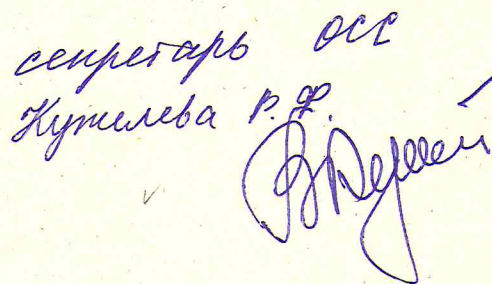 секретарь ОСС
Кутилева Р. Ф.